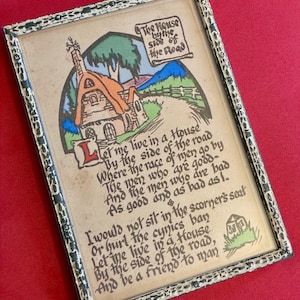 The House
by the
side of
the Road
Let me live in a House
By the side of the road
Where the race of men go by
The men who are good-
And the men who are bad
As good and as bad as I.
I would not sit in the scorner's seat
Or hurl the cynics ban
Let me live in a House
By the side of the road.
And be a friend to man